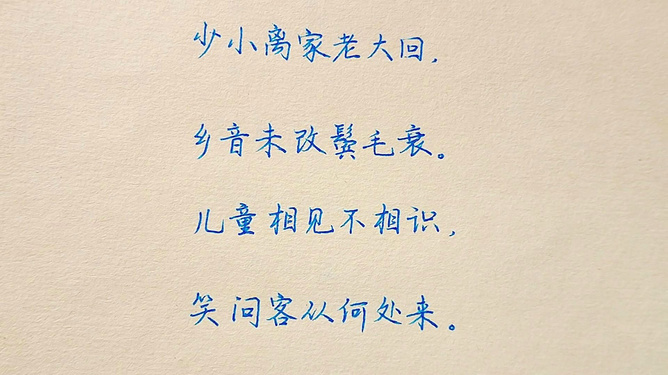 少小离家老大回，
乡音未改鬓毛衰。
儿童相见不相识，
笑问客从何处来。